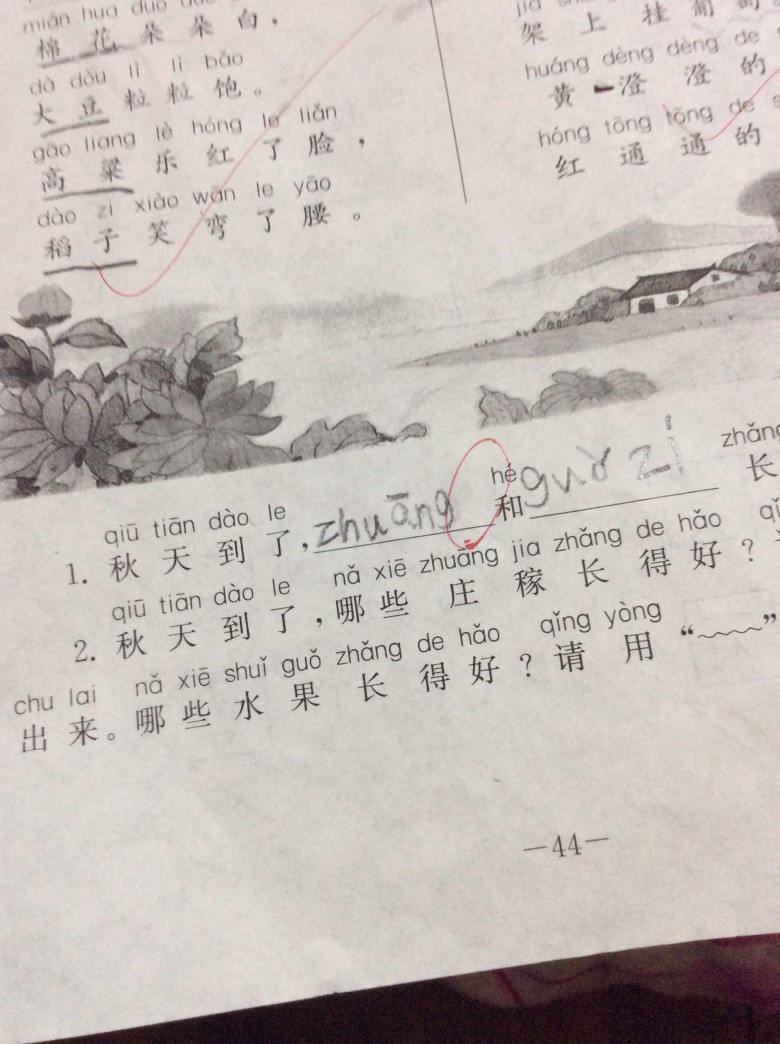 棉花朵朵白，
dà dòu lì lì bǎo
大豆粒粒饱。
gāo liang lè hóng le liǎn
高粱乐红了脸，
dào zi xiào wān le yāo
稻子笑弯了腰。
架上挂葡
huáng dèng dèng de
黄澄澄的
hóng tōng tōng de
红通通的
qiū tiān dào le zhuāng hé guǒ zi zhǎng
1. 秋天到了，和长
qiū tiān dào le nǎ xiē zhuāng jia zhǎng de hǎo
2. 秋天到了，哪些庄稼长得好？
chu lai nǎ xiē shuǐ guǒ zhǎng de hǎo qǐng yòng
出来。哪些水果长得好？请用“﹏﹏”
—44—